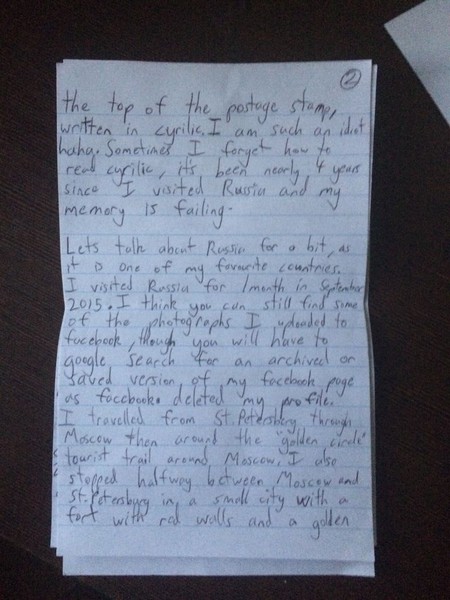 2
the top of the postage stamp,
written in cyrilic. I am such an idiot
haha. Sometimes I forget how to
read cyrilic, it's been nearly 4 years
since I visited Russia and my
memory is failing.
Lets talk about Russia for a bit, as
it is one of my favourite countries.
I visited Russia for 1 month in September
2015. I think you can still find some
of the photographs I uploaded to
facebook, though you will have to
google search for an archived or
saved version of my facebook page
as facebook deleted my profile.
I travelled from St.Petersburg through
Moscow then around the "golden circle"
tourist trail around Moscow. I also
stopped halfway between Moscow and
St.Petersburg in a small city with a
fort with red walls and a golden